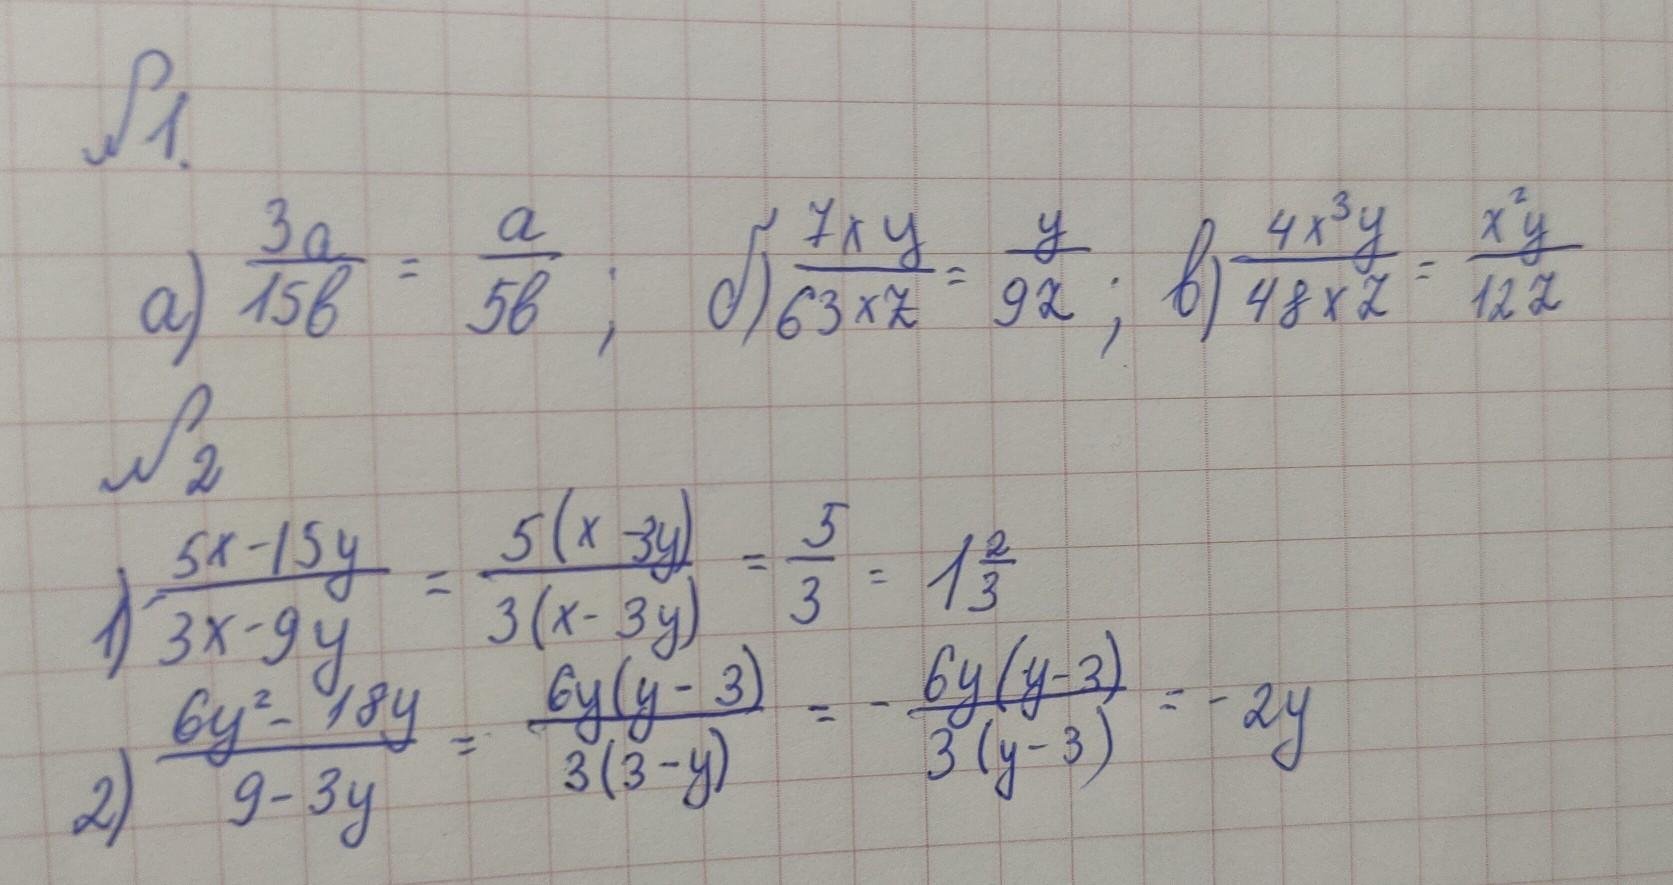 №1.
а) 3a/15b = a/5b ; б) 7xy/63xz = y/9z ; в) 4x³y/48xz = x²y/12z
№2
1) 5x-15y/3x-9y = 5(x-3y)/3(x-3y) = 5/3 = 1 2/3
2) 6y²-18y/9-3y = 6y(y-3)/3(3-y) = - 6y(y-3)/3(y-3) = -2y